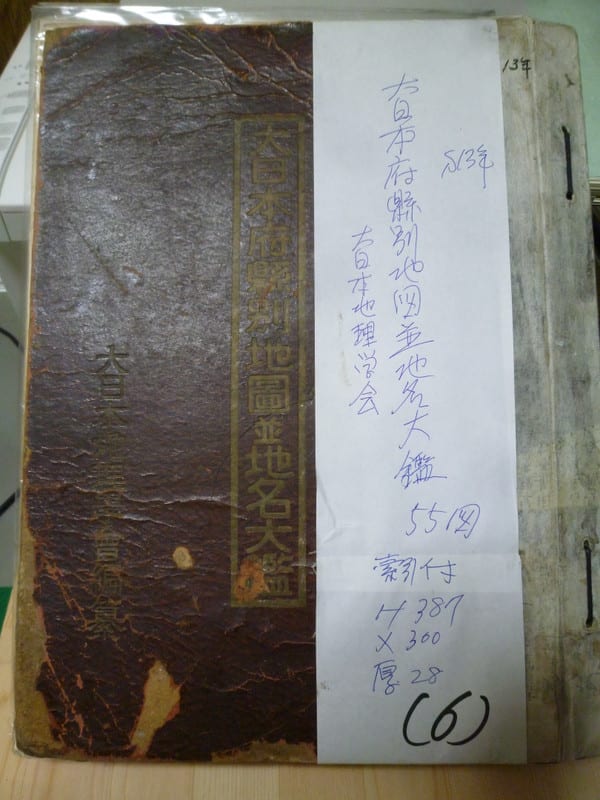 13年
S13年
大日本府縣別地図並地名大鑑
大日本地理学会
55図
索引付
H 387
× 300
厚 28
(6)
大日本府縣別地圖並地名大鑑
大日本地理學會編纂